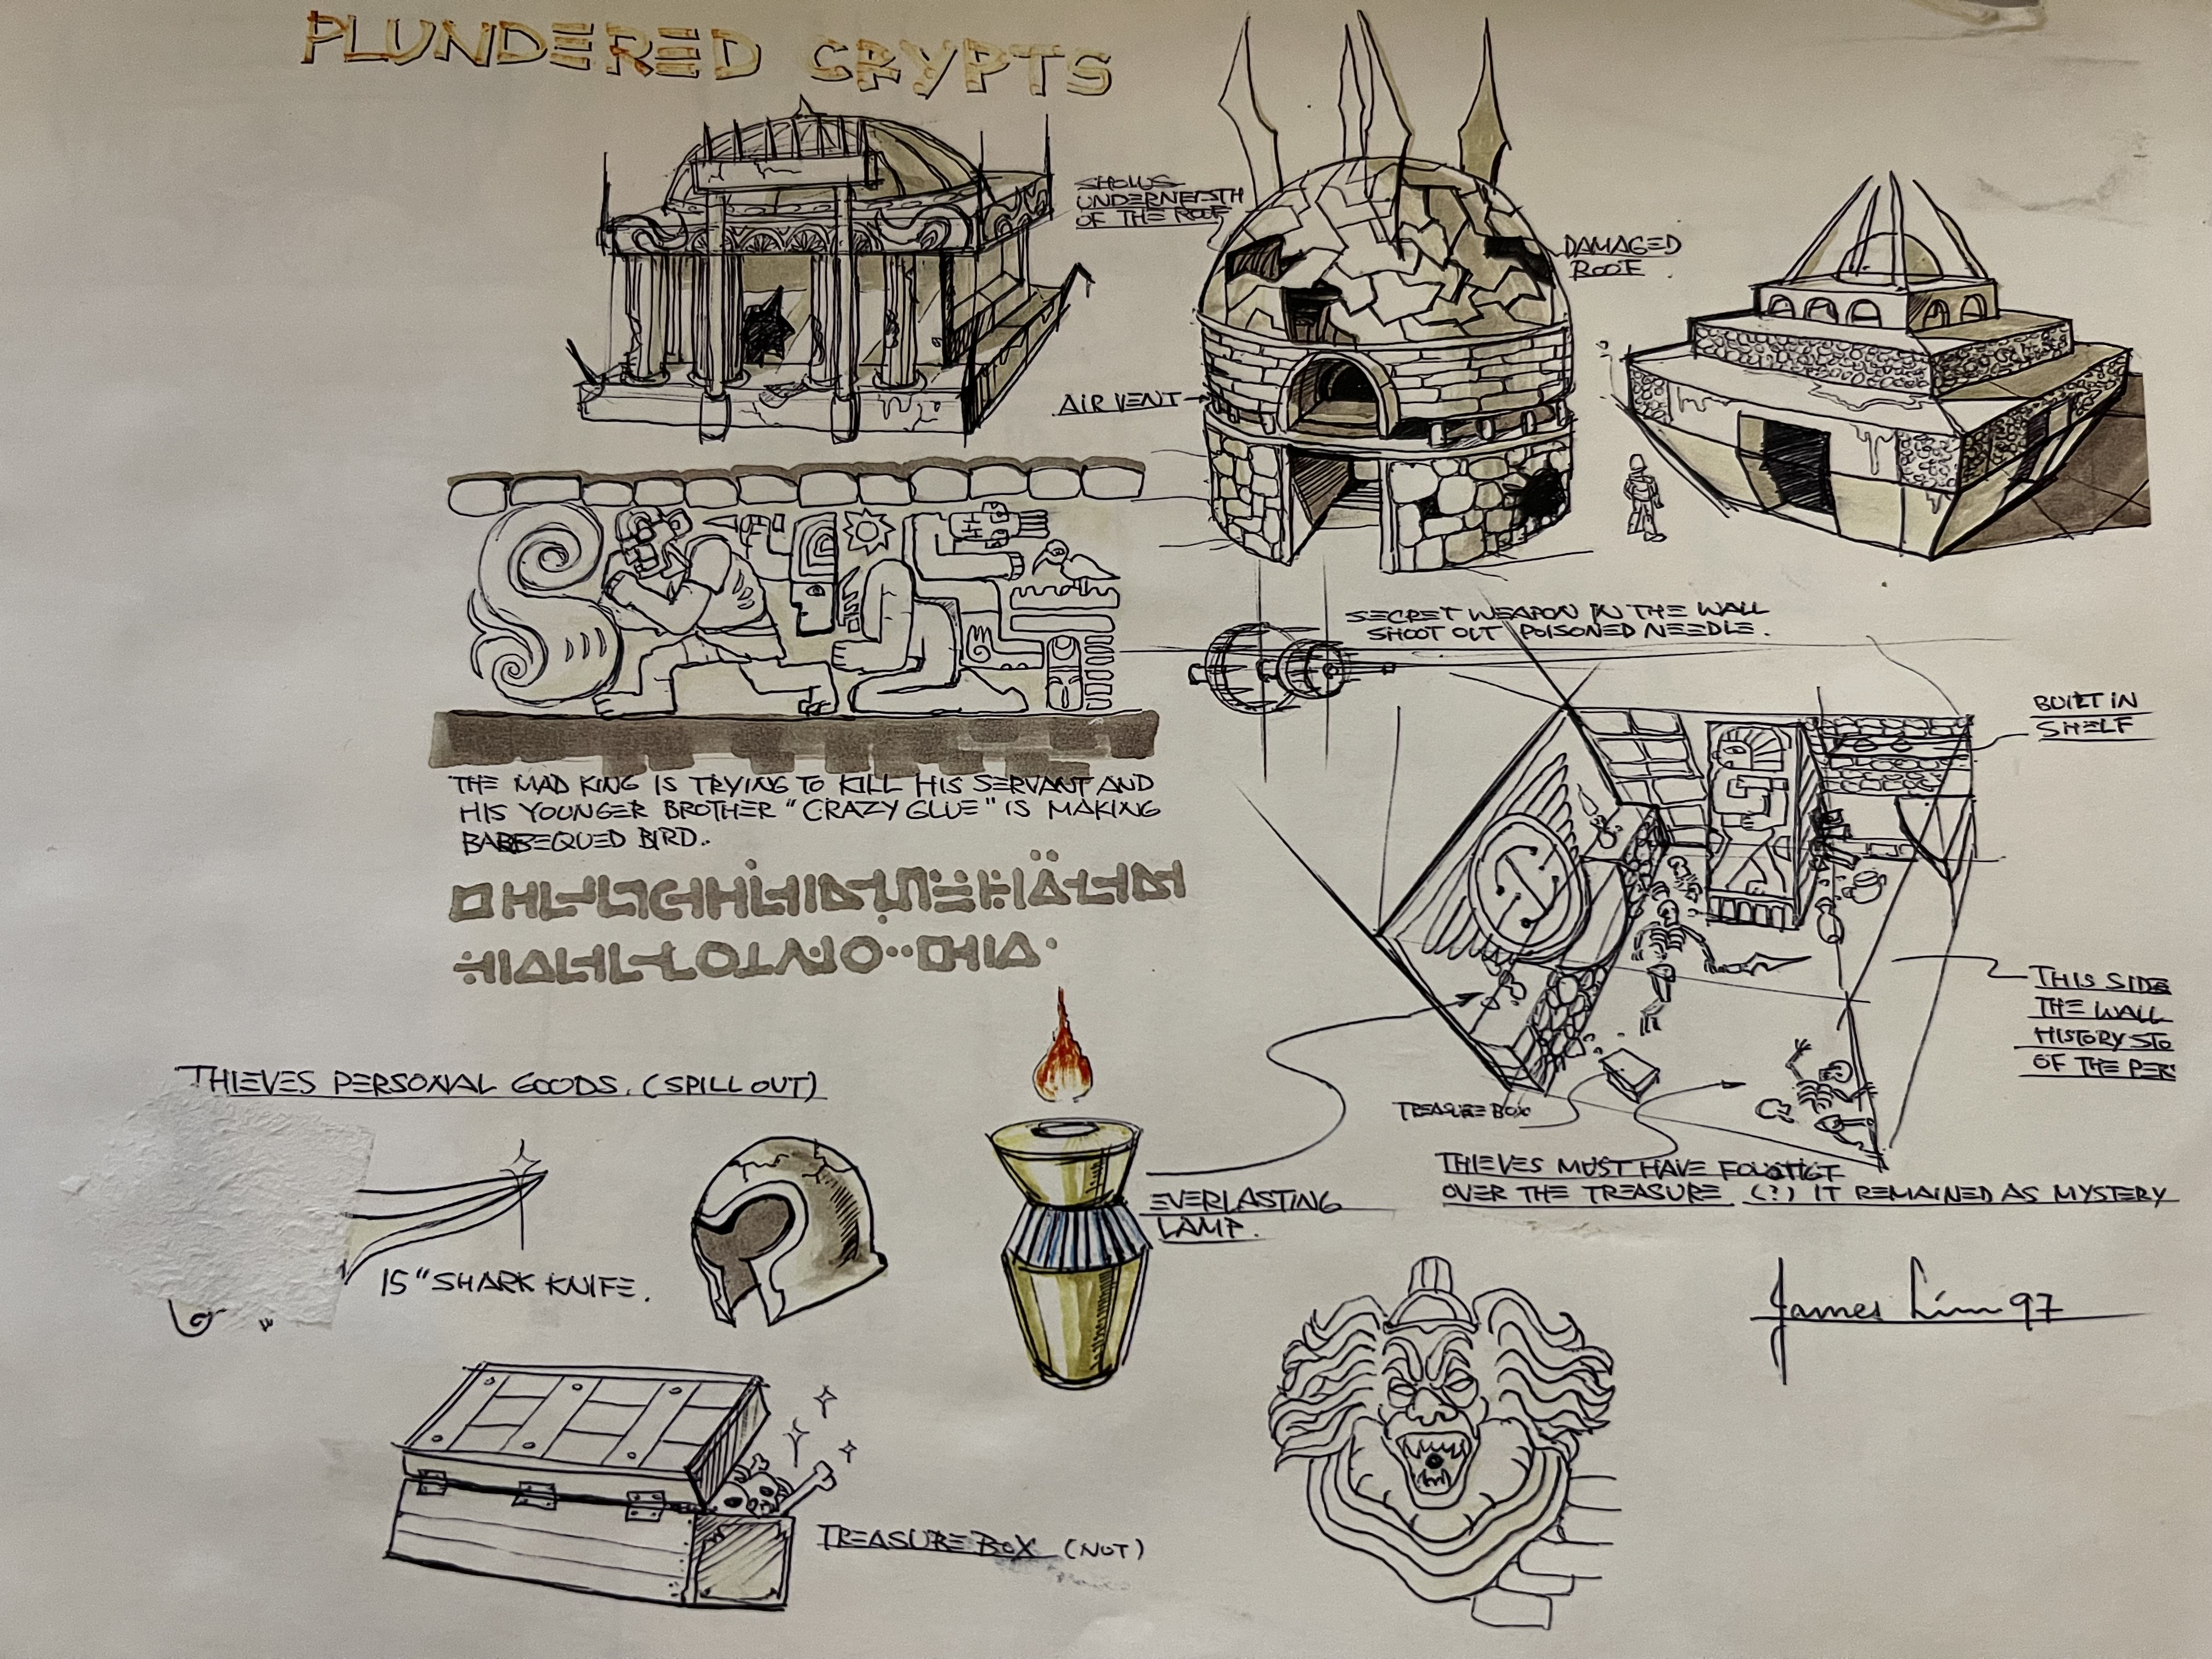 PLUNDERED CRYPTS
SHOWS
UNDERNEATH
OF THE ROOF
DAMAGED
ROOF.
AIR VENT
SECRET WEAPON IN THE WALL
SHOOT OUT POISONED NEEDLE.
BUILT IN
SHELF
THE MAD KING IS TRYING TO KILL HIS SERVANT AND
HIS YOUNGER BROTHER "CRAZY GLUE" IS MAKING
BARBEQUED BIRD..
THIS SIDE
THE WALL
HISTORY STO
OF THE PER
TREASURE BOX
THIEVES MUST HAVE
OVER THE TREASURE. (?) IT REMAINED AS MYSTERY
THIEVES PERSONAL GOODS. (SPILL OUT)
EVERLASTING
LAMP.
15" SHARK KNIFE.
James Lim 97
TREASURE BOX (NOT)